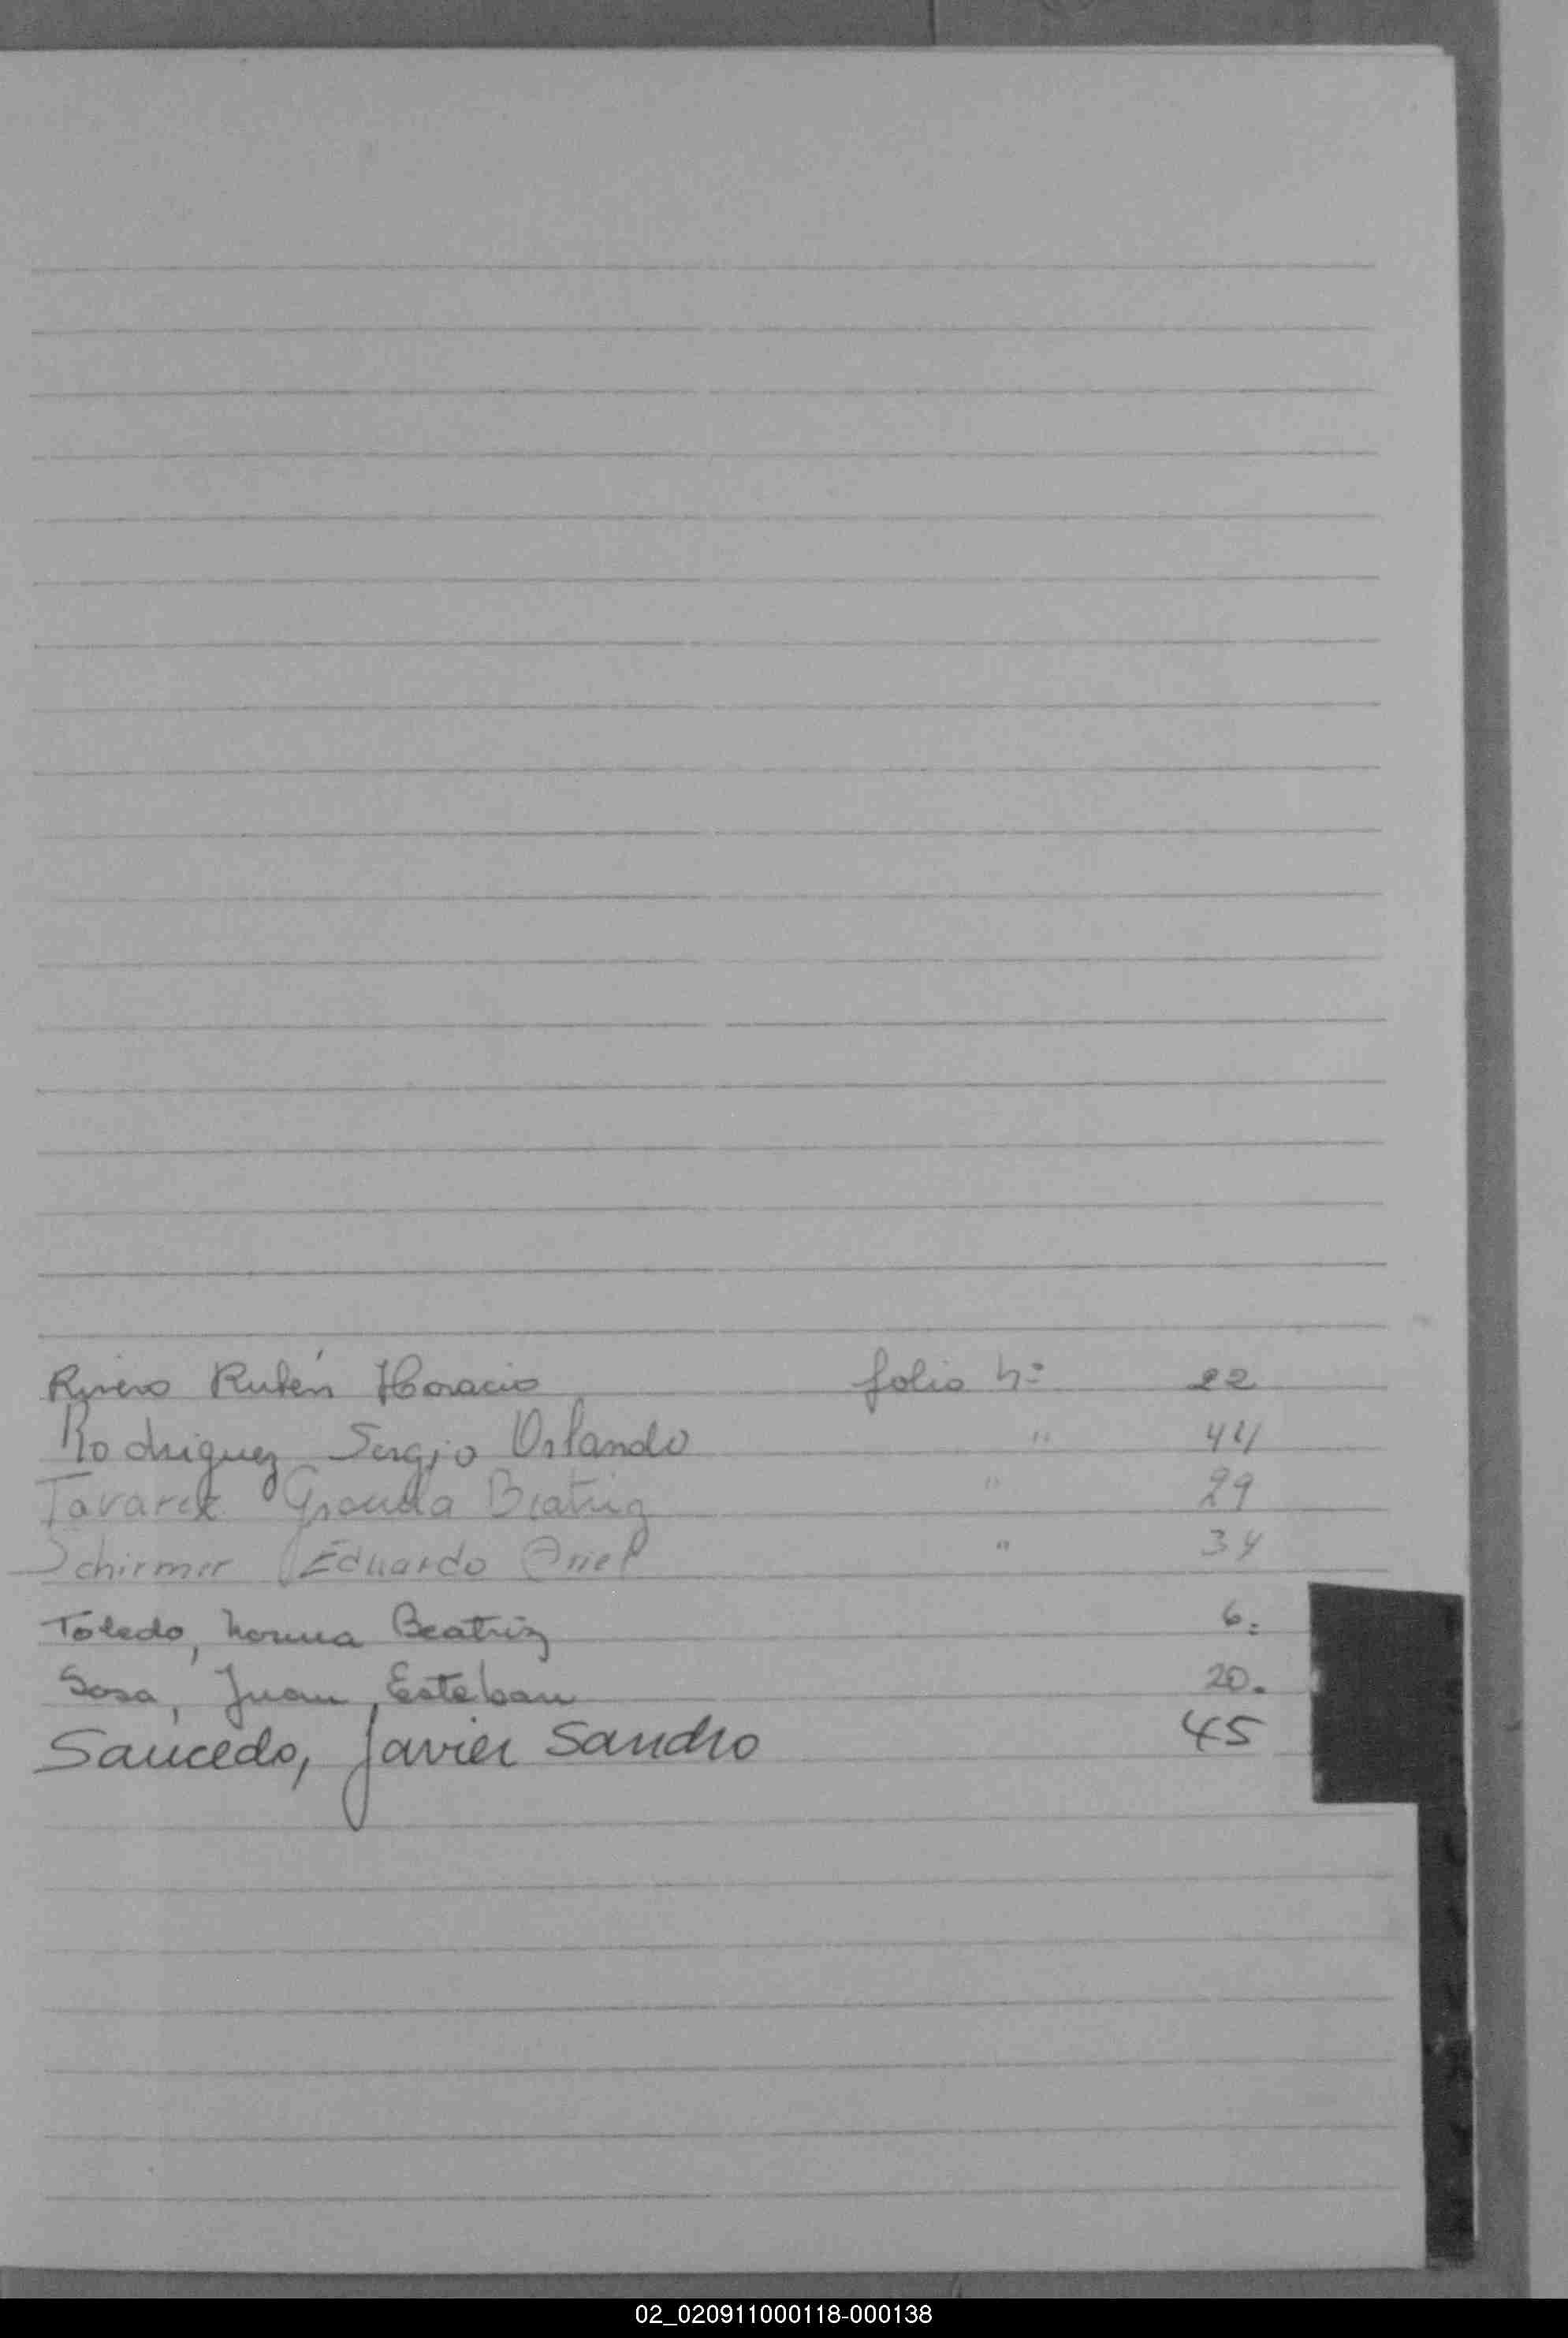 Rivero Rubén Horacio folio nº 22
Rodriguez Sergio Orlando " 44
Tavarez Graciela Beatriz " 29
Schirmer Eduardo Oriel " 34
Toledo, Norma Beatriz 6.
Sosa, Juan Esteban 20.
Saucedo, Javier Sandro 45
02_020911000118-000138